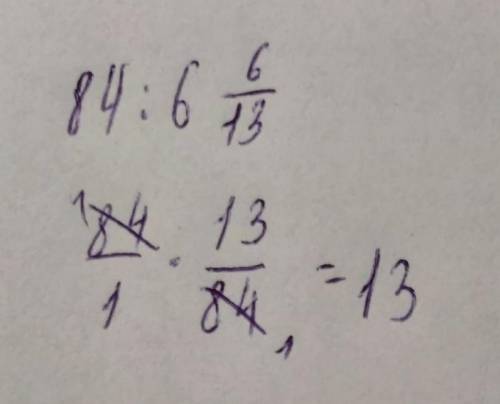 84 : 6 6/13
84/1 · 13/84 = 13
1 1